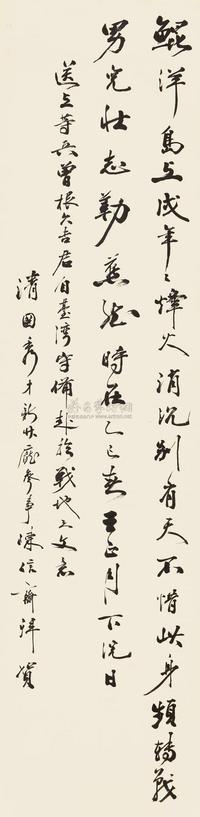 鯤洋島上戍年々烽火消沉別有天不惜此身頻轉戰
男兒壯志勒燕然時在乙巳春王正月下浣日
送上等兵曾根久吉君自臺灣守備赴於戰地之文意
清國秀才新竹廳參事陳信齋賀